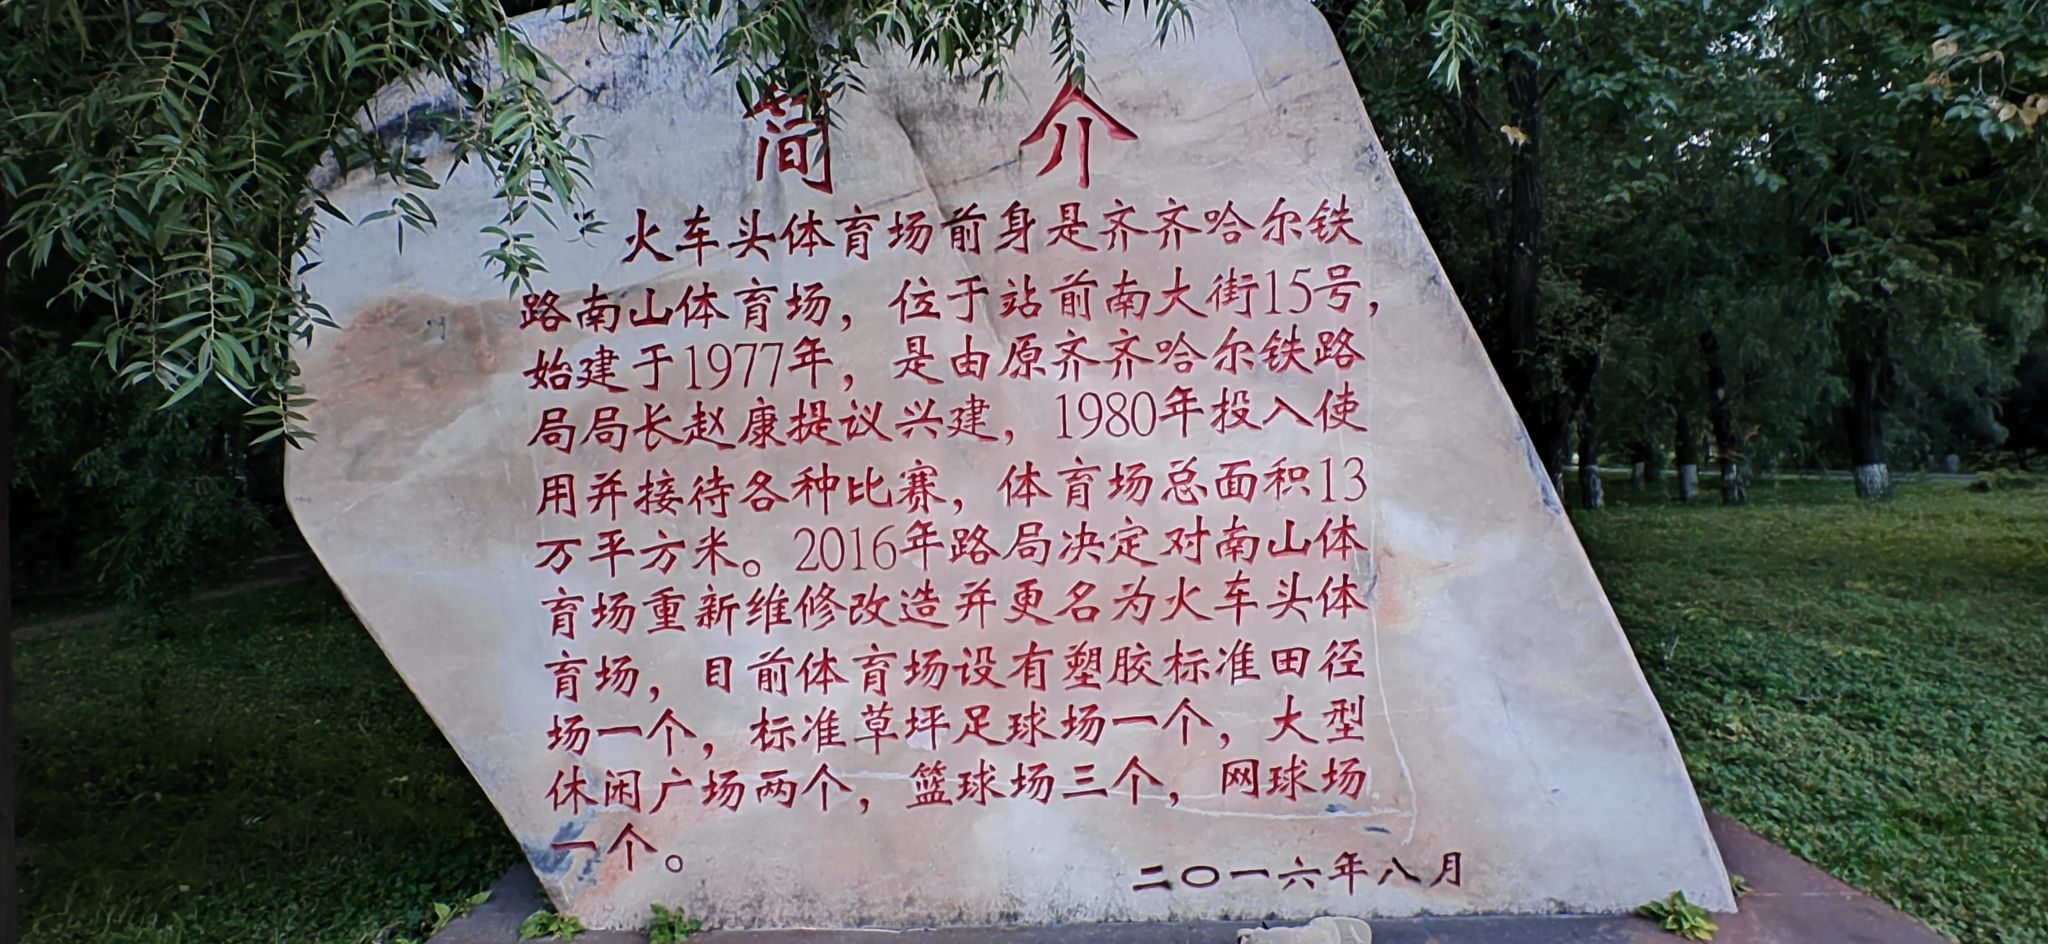 简介
火车头体育场前身是齐齐哈尔铁
路南山体育场，位于站前南大街15号，
始建于1977年，是由原齐齐哈尔铁路
局局长赵康提议兴建，1980年投入使
用并接待各种比赛，体育场总面积13
万平方米。2016年路局决定对南山体
育场重新维修改造并更名为火车头体
育场，目前体育场设有塑胶标准田径
场一个，标准草坪足球场一个，大型
休闲广场两个，篮球场三个，网球场
一个。
二〇一六年八月